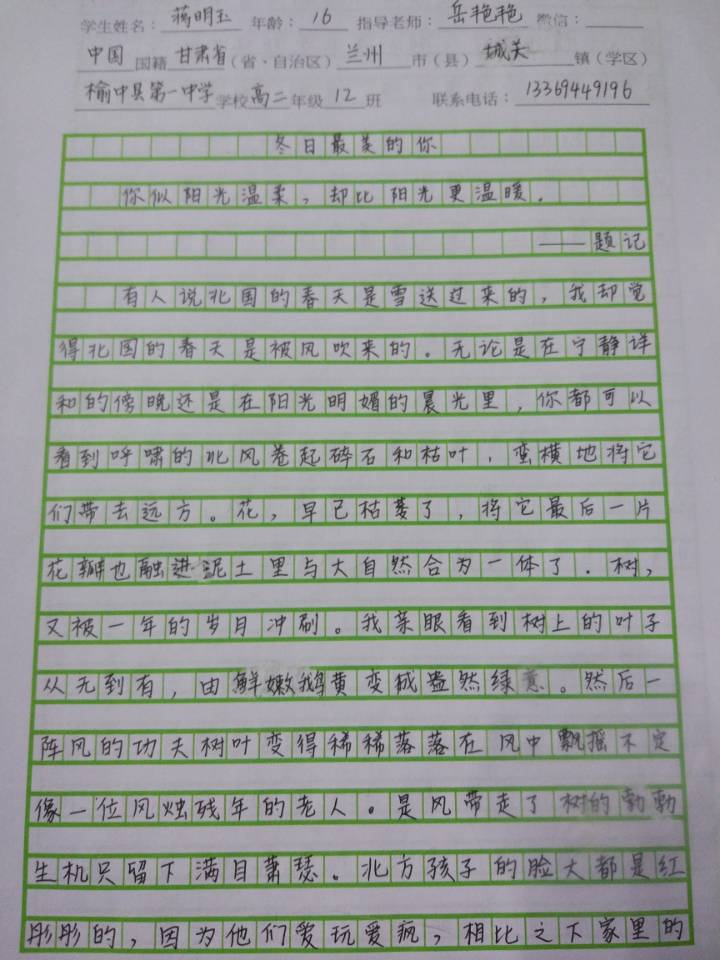 学生姓名：蒋明玉 年龄：16 指导老师：岳艳艳 微信：
中国 国籍 甘肃省（省·自治区）兰州 市（县）城关 镇（学区）
榆中县第一中学 学校 高二 年级 12 班 联系电话：13369449196
冬日最美的你
你似阳光温柔，却比阳光更温暖．
——题记
有人说北国的春天是雪送过来的，我却觉
得北国的春天是被风吹来的。无论是在宁静详
和的傍晚还是在阳光明媚的晨光里，你都可以
看到呼啸的北风卷起碎石和枯叶，蛮横地将它
们带去远方。花，早已枯萎了，将它最后一片
花瓣也融进泥土里与大自然合为一体了．树，
又被一年的岁月冲刷。我亲眼看到树上的叶子
从无到有，由鲜嫩鹅黄变成盎然绿意。然后一
阵风的功夫树叶变得稀稀落落在风中飘摇不定
像一位风烛残年的老人。是风带走了树的勃勃
生机只留下满目萧瑟。北方孩子的脸大都是红
彤彤的，因为他们爱玩爱疯，相比之下家里的